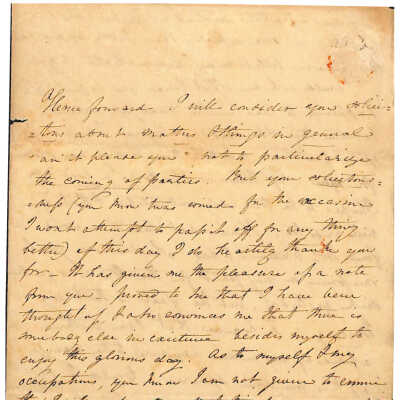 Hence forward I will consider you solici-
-tous about matters & things in general
an it please you not to particularize
the coming of parties. But your solicitous-
-ness (you know twas coined for the occasion
I wont attempt to pass it off for any thing
better) of this day I do heartily thank you
for - It has given me the pleasure of a note
from you - proved to me that I have been
thought of, & also convinces me that there is
somebody else in existence besides myself to
enjoy this glorious day. As to myself & my
occupations, you know I am not given to